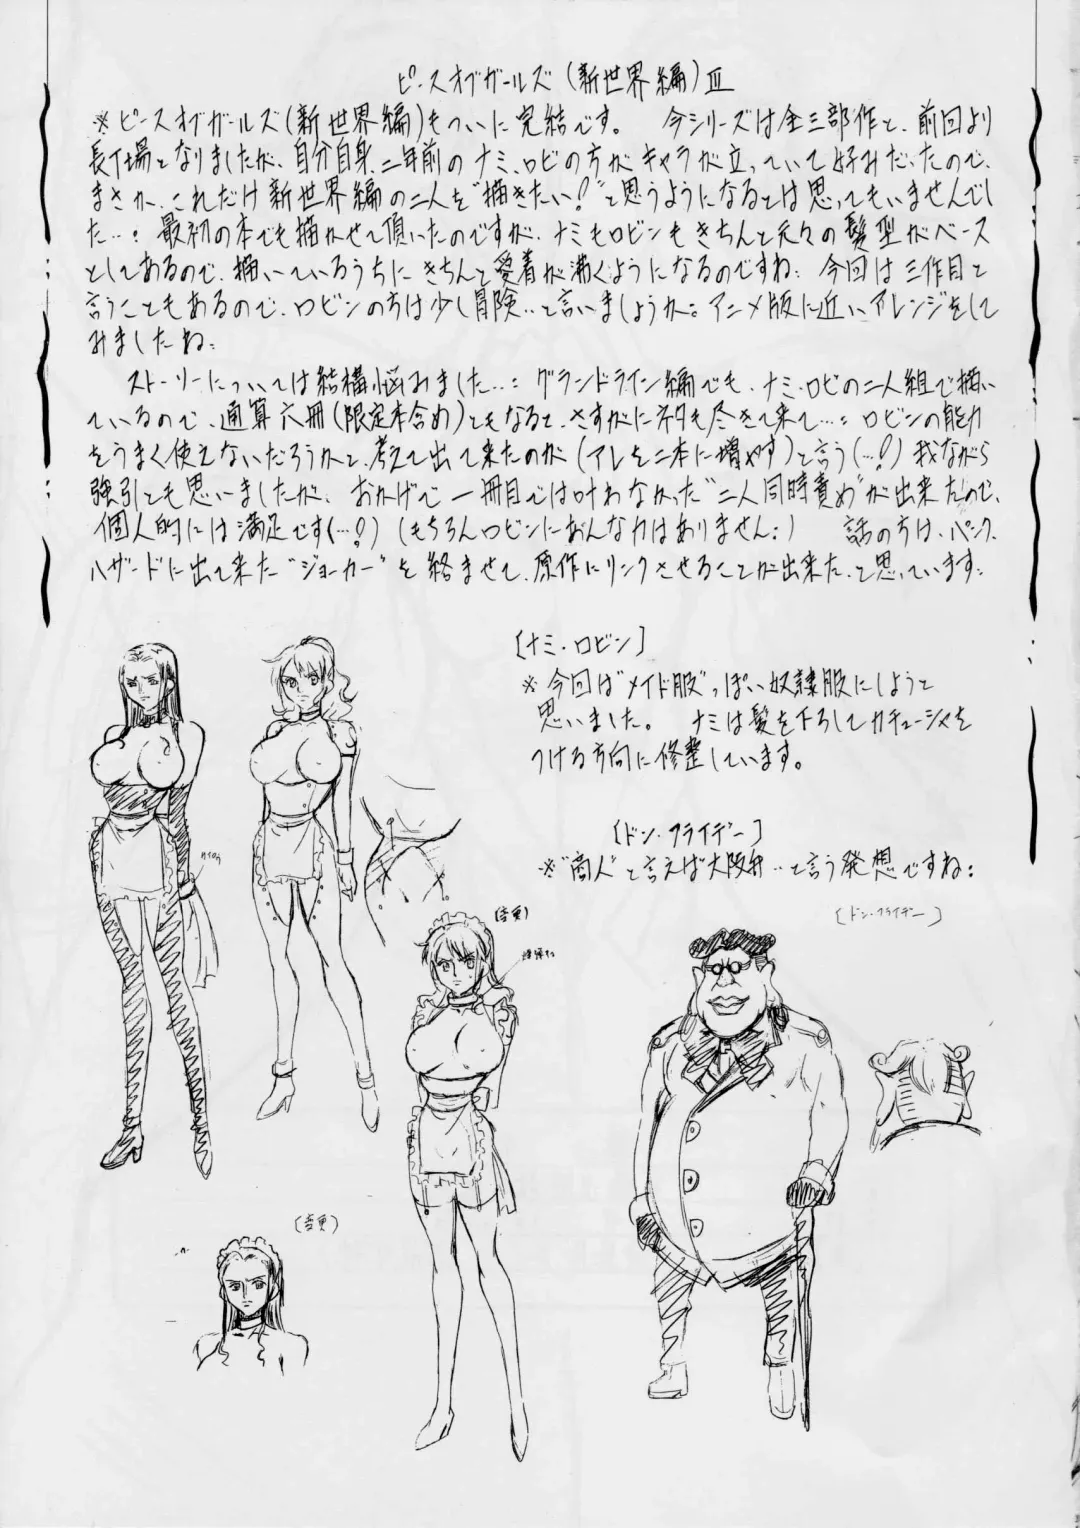 ピースオブガールズ(新世界編)Ⅲ
※ピースオブガールズ(新世界編)もついに完結です。 今シリーズは全三部作と、前回より
長丁場となりましたが、自分自身、二年前のナミ、ロビの方がキャラが立っていて好みだったので、
まさか、これだけ新世界編の二人を“描きたい!”と思うようになるとは思ってもいませんでし
た…: 最初の本でも描かせて頂いたのですが、ナミもロビンもきちんと元々の髪型がベース
としてあるので、描いているうちにきちんと愛着が沸くようになるのですね: 今回は三作目と
言うこともあるので、ロビンの方は少し冒険‥と言いましょうか。アニメ版に近いアレンジをして
みましたね:
ストーリーについては結構悩みました…: グランドライン編でも、ナミ・ロビの二人組で描い
ているので、通算六冊(限定本含め)ともなると、さすがにネタも尽きて来て…: ロビンの能力
をうまく使えないだろうかと、考えて出て来たのが(アレを二本に増やす)と言う(…!?) 我ながら
強引とも思いましたが、おかげで一冊目では叶わなかった“二人同時責め”が出来たので、
個人的には満足です(…!?) (もちろんロビンにあんな力はありません:) 話の方は、パンク
ハザードに出て来た“ジョーカー”を絡ませて、原作にリンクさせることが出来た、と思っています:
[ナミ・ロビン]
※今回は“メイド服”っぽい奴隷服にしようと
思いました。 ナミは髪を下ろしてカチューシャを
つける方向に修整しています。
[ドン・フライデー]
※“商人”と言えば大阪弁‥と言う発想ですね:
[ドン・フライデー]
(変更)
(変更)